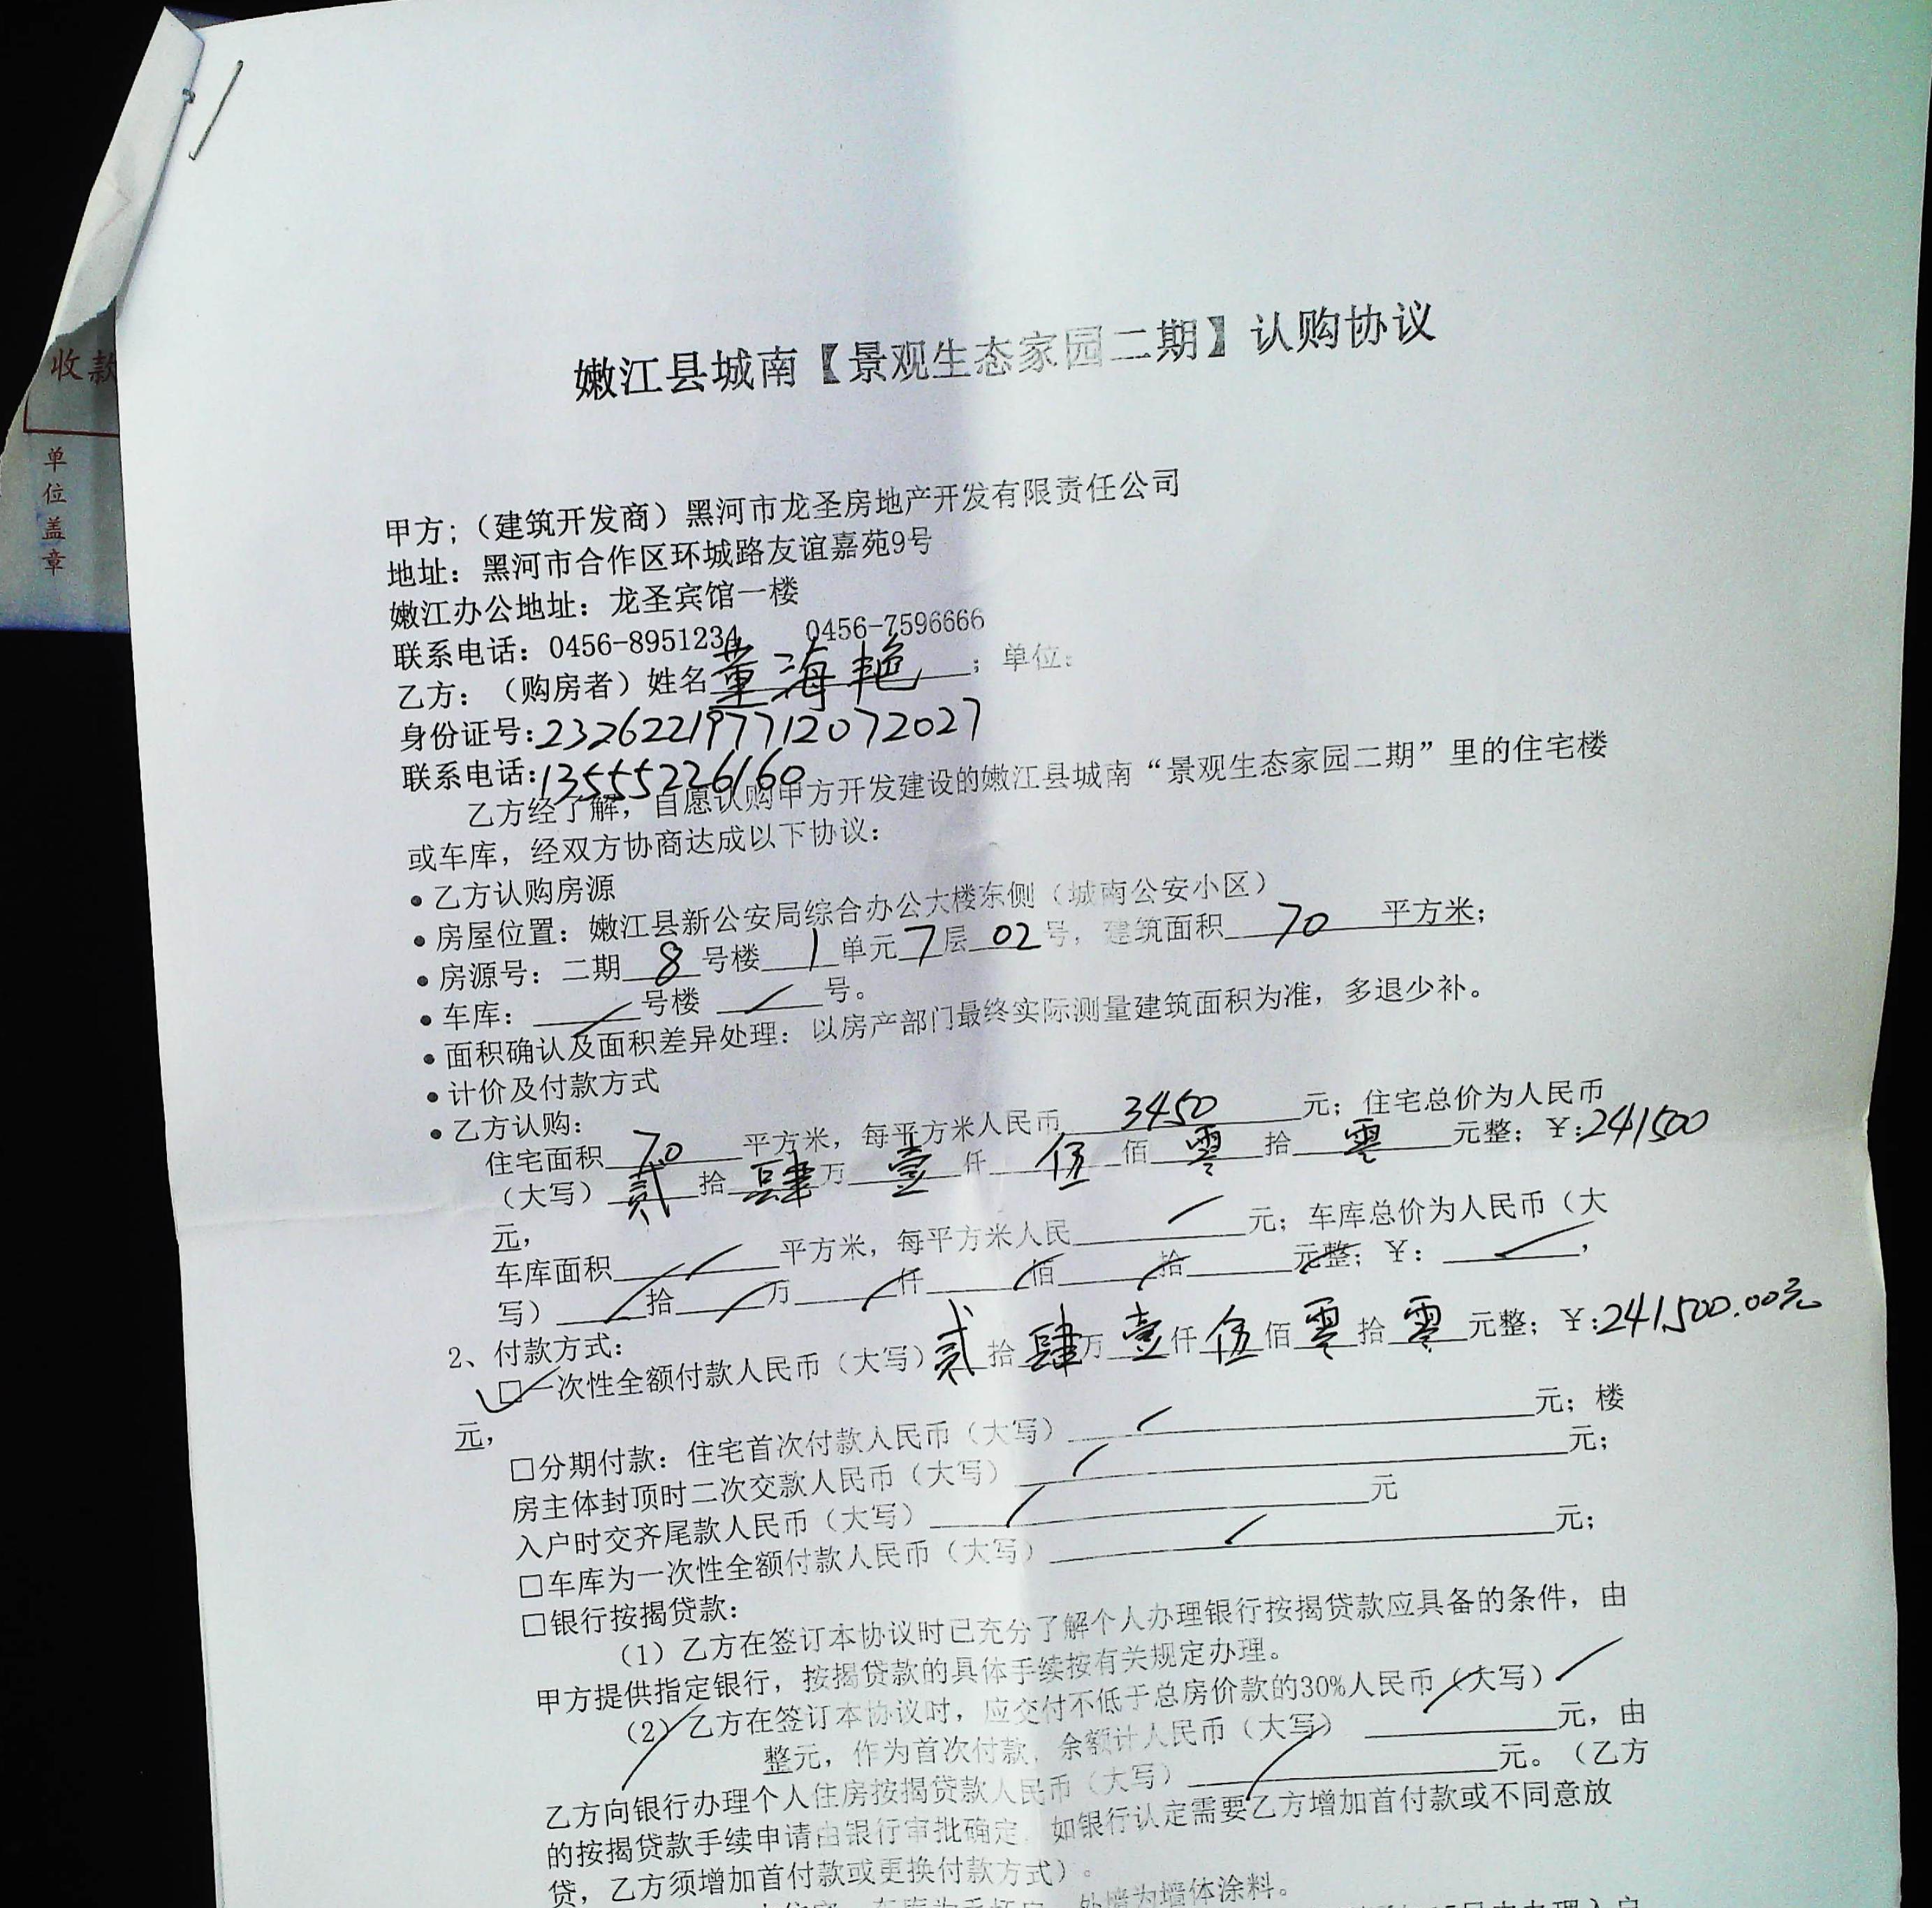 收款
单
位
盖
章
嫩江县城南【景观生态家园二期】认购协议
甲方；（建筑开发商）黑河市龙圣房地产开发有限责任公司
地址：黑河市合作区环城路友谊嘉苑9号
嫩江办公地址：龙圣宾馆一楼
联系电话：0456-8951234 0456-7596666
乙方：（购房者）姓名董海艳；单位：
身份证号:232622197712072027
联系电话:13555226160
乙方经了解，自愿认购甲方开发建设的嫩江县城南“景观生态家园二期”里的住宅楼
或车库，经双方协商达成以下协议：
•乙方认购房源
•房屋位置：嫩江县新公安局综合办公大楼东侧（城南公安小区）
•房源号：二期8号楼1单元7层02号，建筑面积70平方米；
•车库：/号楼/号。
•面积确认及面积差异处理：以房产部门最终实际测量建筑面积为准，多退少补。
•计价及付款方式
•乙方认购：
住宅面积70平方米，每平方米人民币3450元；住宅总价为人民币
（大写）贰拾肆万壹仟伍佰零拾零元整；￥:241500
元，
车库面积/平方米，每平方米人民/元；车库总价为人民币（大
写）/拾/万/仟/佰/拾/元整；￥：/，
2、付款方式：
☑一次性全额付款人民币（大写）贰拾肆万壹仟伍佰零拾零元整；￥:241,500.00元
元，
□分期付款：住宅首次付款人民币（大写）/元；楼
房主体封顶时二次交款人民币（大写）/元；
入户时交齐尾款人民币（大写）/元
□车库为一次性全额付款人民币（大写）/元；
□银行按揭贷款：
（1）乙方在签订本协议时已充分了解个人办理银行按揭贷款应具备的条件，由
甲方提供指定银行，按揭贷款的具体手续按有关规定办理。
（2）乙方在签订本协议时，应交付不低于总房价款的30%人民币（大写）/
整元，作为首次付款，余额计人民币（大写）元，由
乙方向银行办理个人住房按揭贷款人民币（大写）/元。（乙方
的按揭贷款手续申请由银行审批确定，如银行认定需要乙方增加首付款或不同意放
贷，乙方须增加首付款或更换付款方式）。
外墙为墙体涂料。